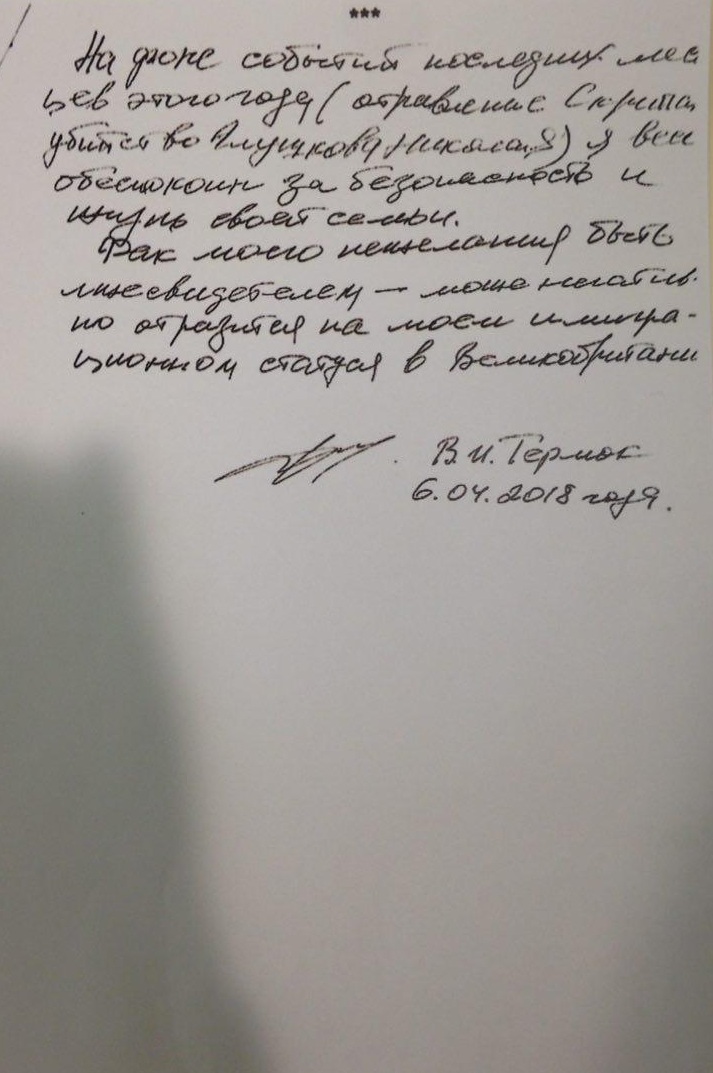 ***
На фоне событий последних меся
цев этого года (отравление Скрипа
убийство Глушкова Николая) я
обеспокоин за безопасность и
жизнь своей семьи.
Фак моего нежелания быть
лжесвидетелем — може негатив-
но отразится на моем иммигра-
ционном статуся в Великобритани
В.И. Термок
6.04.2018 года.